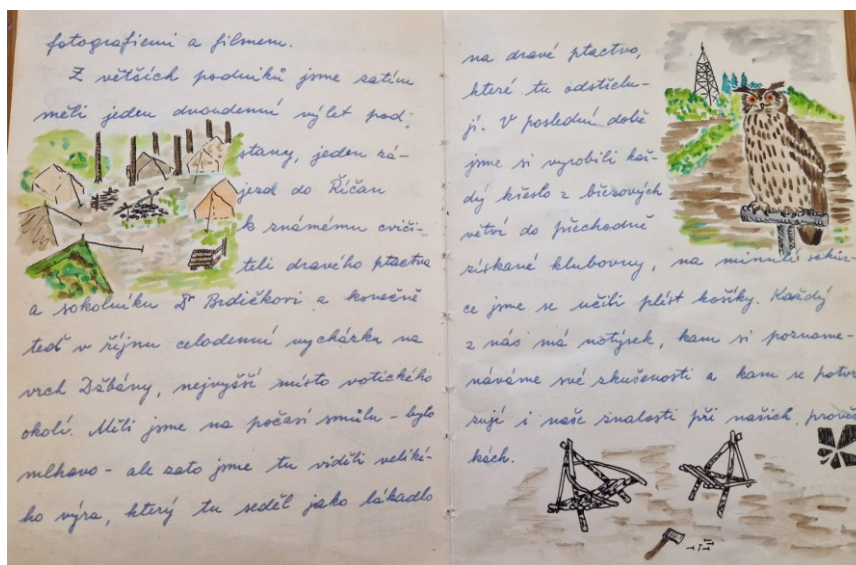 fotografiemi a filmem.
Z větších podniků jsme zatím
měli jeden dvoudenní výlet pod
stany, jeden zá-
jezd do Říčan
k známému cviči-
teli dravého ptactva
a sokolníku Dr Brdičkovi a konečně
teď v říjnu celodenní vycházku na
vrch Džbány, nejvyšší místo votického
okolí. Měli jsme na počasí smůlu - bylo
mlhavo - ale zato jsme tu viděli veliké-
ho výra, který tu seděl jako lákadlo
na dravé ptactvo,
které tu odstřelu-
jí. V poslední době
jsme si vyrobili kaž-
dý křeslo z březových
větví do přechodně
získané klubovny, na minulé schůz-
ce jsme se učili plést košíky. Každý
z nás má notýsek, kam si pozname-
náváme své zkušenosti a kam se potvr
zují i naše znalosti při našich prověr
kách.